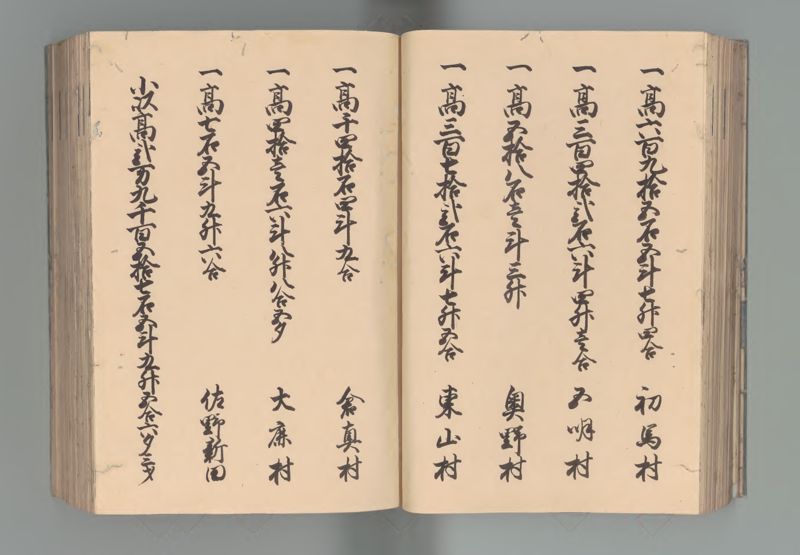 一高六百九拾五石五斗七升四合 初馬村
一高三百四拾弐石六斗四升壱合 五明村
一高五拾八石壱斗三升 奥野村
一高三百七拾弐石六斗七升五合 東山村
一高千四拾石四斗九合 倉真村
一高四拾壱石六斗八升八合五夕 大庶村
一高七石五斗九升六合 佐野新田
小以高弐万九千百五拾七石五斗九升五合六夕二才